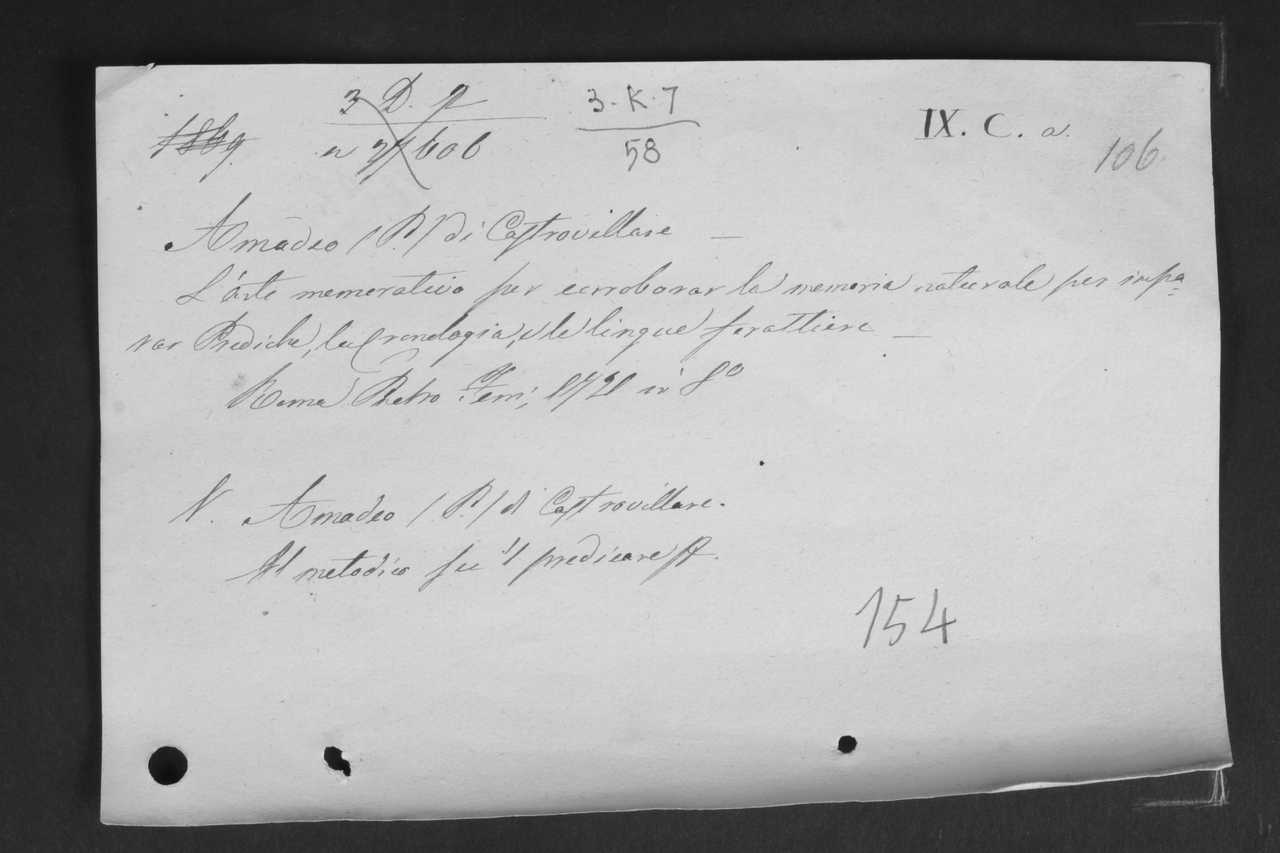 3 D. 9
3-K-7
IX. C. a.
1869.
606
58
106.
Amadeo (P.) di Castrovillare —
L'arte memorativa per corroborar la memoria naturale per impa-
rar Prediche, la Cronologia, e le lingue forattiere —
Roma Pietro Ferri, 1721 in 8º
N. Amadeo (P.) di Castrovillare.
Al metodico su 'l predicare
154